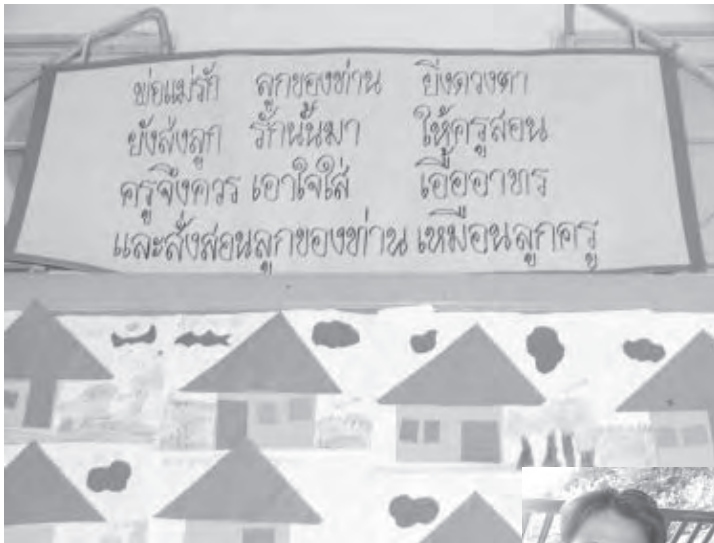 พ่อแม่รัก ลูกของท่าน ยิ่งดวงตา
ยังส่งลูก รักนั้นมา ให้ครูสอน
ครูจึงควร เอาใจใส่ เอื้ออาทร
และสั่งสอนลูกของท่าน เหมือนลูกครู